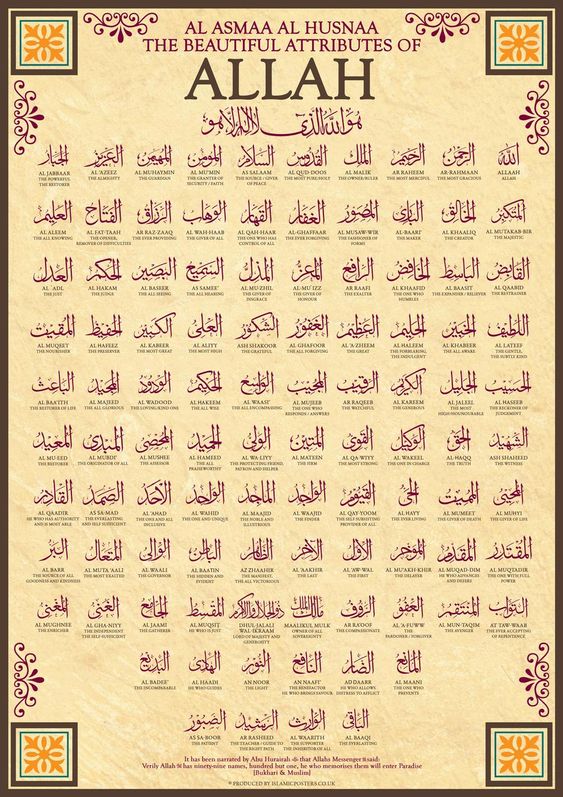 AL ASMAA AL HUSNAA
THE BEAUTIFUL ATTRIBUTES OF
ALLAH
هو الله الذي لا اله الا هو
الله
ALLAAH
ALLAH
الرحمن
AR-RAHMAAN
MOST GRACIOUS
الرحيم
AR RAHEEM
THE MOST MERCIFUL
الملك
AL MALIK
THE OWNER/RULER
القدوس
AL QUD-DOOS
THE MOST PURE/HOLY
السلام
AS SALAAM
THE SOURCE / GIVER
OF PEACE
المؤمن
AL MU'MIN
THE GRANTER OF
SECURITY / FAITH
المهيمن
AL MUHAYMIN
THE GUARDIAN
العزيز
AL 'AZEEZ
THE ALMIGHTY
الجبار
AL JABBAAR
THE POWERFUL
THE RESTORER
المتكبر
AL MUTAKAB-BIR
THE MAJESTIC
الخالق
AL KHAALIQ
THE CREATOR
البارئ
AL-BAARI'
THE MAKER
المصور
AL MUSAW-WIR
THE FASHIONER OF
FORMS
الغفار
AL-GHAFFAAR
THE EVER FORGIVING
القهار
AL QAH-HAAR
THE ONE WHO HAS
CONTROL OF ALL
الوهاب
AL WAH-HAAB
THE GIVER OF ALL
الرزاق
AR RAZ-ZAAQ
THE EVER PROVIDING
الفتاح
AL FAT-TAAH
THE OPENER,
REMOVER OF DIFFICULTIES
العليم
AL ALEEM
THE ALL KNOWING
القابض
AL QAABID
THE RESTRAINER
الباسط
AL BAASIT
THE EXPANDER / RELIEVER
الخافض
AL KHAAFID
THE ONE WHO
HUMBLES
الرافع
AR RAAFI
THE EXALTER
المعز
AL MU' IZZ
THE GIVER OF
HONOUR
المذل
AL MU-ZHIL
THE GIVER OF
DISGRACE
السميع
AS SAMEE'
THE ALL HEARING
البصير
AL BASEER
THE ALL SEEING
الحكم
AL HAKAM
THE JUDGE
العدل
AL 'ADL
THE JUST
اللطيف
AL LATEEF
THE GENTLE,
THE SUBTLY KIND
الخبير
AL KHABEER
THE ALL AWARE
الحليم
AL HALEEM
THE FORBEARING,
THE INDULGENT
العظيم
AL A'ZHEEM
THE GREAT
الغفور
AL GHAFOOR
THE ALL FORGIVING
الشكور
ASH SHAKOOR
THE GRATEFUL
العلي
AL ALIYY
THE MOST HIGH
الكبير
AL KABEER
THE MOST GREAT
الحفيظ
AL HAFEEZ
THE PRESERVER
المقيت
AL MUQEET
THE NOURISHER
الحسيب
AL HASEEB
THE RECKONER OF
JUDGEMENT
الجليل
AL JALEEL
THE MOST
HIGH/HONOURABLE
الكريم
AL KAREEM
THE GENEROUS
الرقيب
AR RAQEEB
THE WATCHFUL
المجيب
AL MUJEEB
THE ONE WHO
RESPONDS / ANSWERS
الواسع
AL WAASI'
THE ALL ENCOMPASSING
الحكيم
AL HAKEEM
THE ALL WISE
الودود
AL WADOOD
THE LOVING/KIND ONE
المجيد
AL MAJEED
THE ALL GLORIOUS
الباعث
AL BAATTH
THE RESTORER OF LIFE
الشهيد
ASH SHAHEED
THE WITNESS
الحق
AL-HAQQ
THE TRUTH
الوكيل
AL WAKEEL
THE ONE IN CHARGE
القوي
AL QA-WIYY
THE MOST STRONG
المتين
AL MATEEN
THE FIRM
الولي
AL WA-LIYY
THE PROTECTING FRIEND,
PATRON AND HELPER
الحميد
AL HAMEED
THE ALL
PRAISEWORTHY
المحصي
AL MUHSEE
THE ASSESSOR
المبدئ
AL MUBDI'
THE ORIGINATOR OF ALL
المعيد
AL MU-EED
THE RESTORER
المحيي
AL MUHYI
THE GIVER OF LIFE
المميت
AL MUMEET
THE GIVER OF DEATH
الحي
AL HAYY
THE EVER LIVING
القيوم
AL QAY-YOOM
THE SELF SUBSISTING
PROVIDER OF ALL
الواجد
AL WAAJID
THE FINDER
الماجد
AL MAAJID
THE NOBLE AND
ILLUSTRIOUS
الواحد
AL WAHID
THE ONE AND UNIQUE
الاحد
AL 'AHAD
THE ONE AND ALL
INCLUSIVE
الصمد
AS SA-MAD
THE EVERLASTING
AND SELF SUFFICIENT
القادر
AL QAADIR
HE WHO HAS AUTHORITY
AND IS MOST ABLE
المقتدر
AL MUQTADIR
THE ONE WITH FULL
POWER
المقدم
AL MUQAD-DIM
HE WHO ADVANCES
AND DEFERS
المؤخر
AL MU'AKH-KHIR
THE DELAYER
الاول
AL 'AW-WAL
THE FIRST
الاخر
AL 'AAKHIR
THE LAST
الظاهر
AZ ZHAAHIR
THE MANIFEST,
THE ALL VICTORIOUS
الباطن
AL BAATIN
THE HIDDEN AND
EVIDENT
الوالي
AL WAALI
THE GOVERNOR
المتعال
AL MUTA 'AALI
THE MOST EXALTED
البر
AL BARR
THE SOURCE OF ALL
GOODNESS AND KINDNESS
التواب
AT TAW-WAAB
THE EVER ACCEPTING
OF REPENTENCE
المنتقم
AL MUN-TAQIM
THE AVENGER
العفو
AL 'A-FUWW
THE
PARDONER / FORGIVER
الرؤوف
AR RA'OOF
THE COMPASSIONATE
مالك الملك
MAALIKUL MULK
OWNER OF ALL
SOVEREIGNTY
ذو الجلال والاكرام
DHUL-JALALI
WAL-IKRAAM
LORD OF MAJESTY AND
GENEROSITY
المقسط
AL MUQSIT
HE WHO IS JUST
الجامع
AL JAAMI
THE GATHERER
الغني
AL GHA-NIYY
THE INDEPENDENT
THE SELF-SUFFICIENT
المغني
AL MUGHNEE
THE ENRICHER
المانع
AL MAANI
THE ONE WHO
PREVENTS
الضار
AD DAARR
HE WHO ALLOWS
DISTRESS TO AFFLICT
النافع
AN NAAFI'
THE BENEFACTOR
HE WHO BRINGS SAVOUR
النور
AN NOOR
THE LIGHT
الهادي
AL HAADI
HE WHO GUIDES
البديع
AL BADEE'
THE INCOMPARABLE
الباقي
AL BAAQI
THE EVERLASTING
الوارث
AL WAARITH
THE SUPPORTER
THE INHERITOR OF ALL
الرشيد
AR RASHEED
THE TEACHER / GUIDE TO
THE RIGHT PATH
الصبور
AS SA-BOOR
THE PATIENT
It has been narrated by Abu Hurairah that Allahs Messenger ﷺ said:
Verily Allah has ninety-nine names, hundred but one, he who memorises them will enter Paradise
[Bukhari & Muslim]
© PRODUCED BY ISLAMICPOSTERS.CO.UK